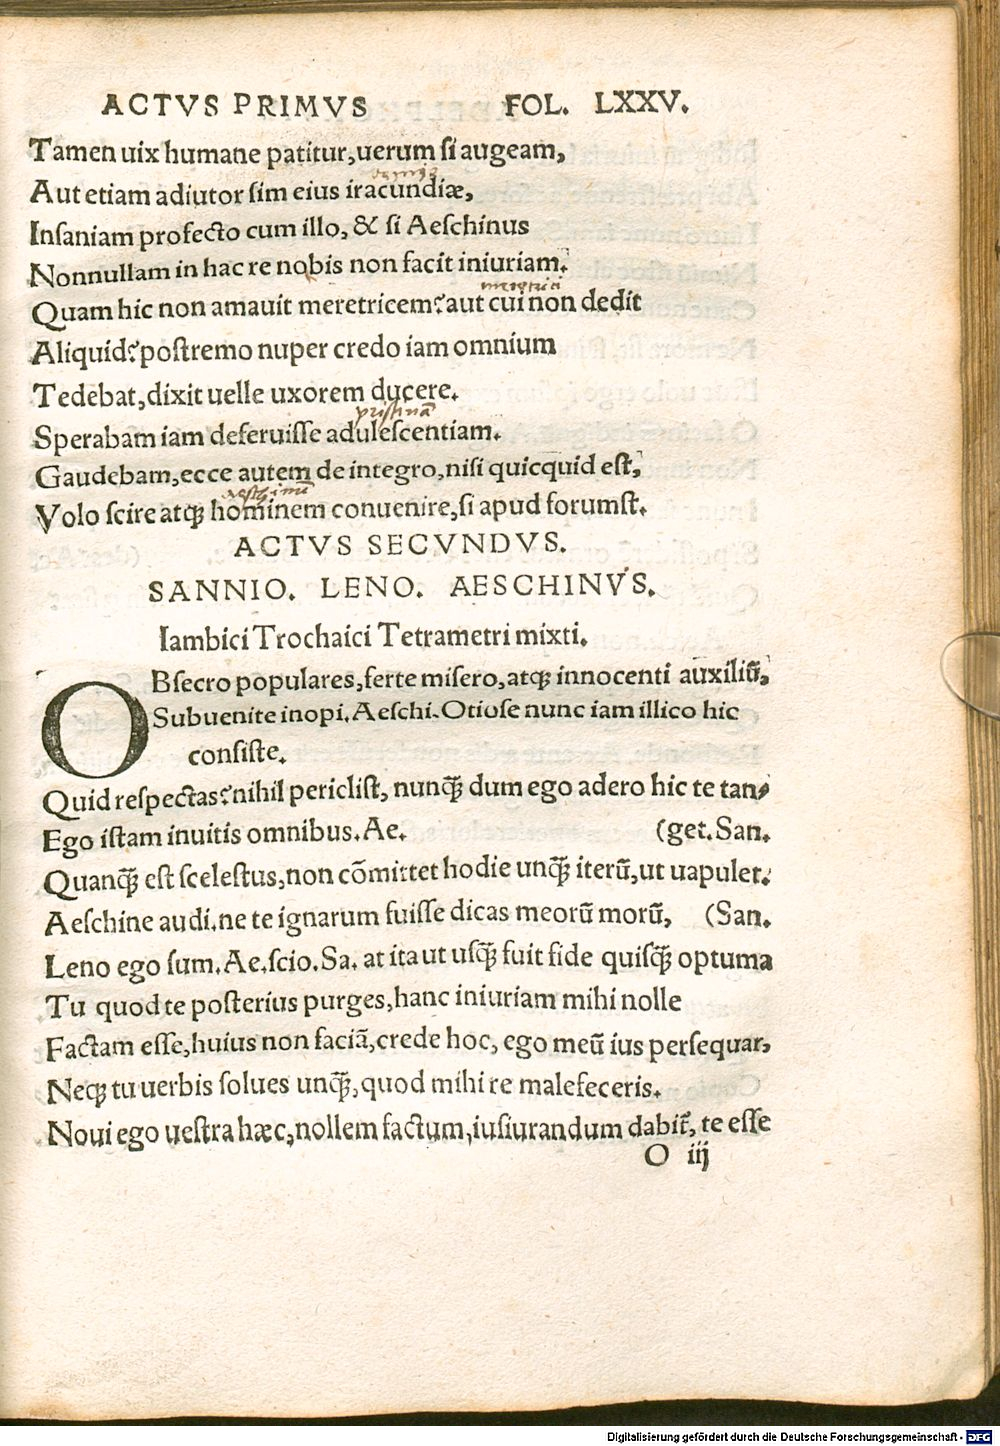 ACTVS PRIMVS FOL. LXXV.
Tamen uix humane patitur, uerum si augeam,
Aut etiam adiutor sim eius iracundiæ,
Insaniam profecto cum illo, & si Aeschinus
Nonnullam in hac re nobis non facit iniuriam.
meretrici
Quam hic non amauit meretricem? aut cui non dedit
Aliquid? postremo nuper credo iam omnium
Tedebat, dixit uelle uxorem ducere.
pristinā
Sperabam iam deferuisse adulescentiam.
Gaudebam, ecce autem de integro, nisi quicquid est,
Volo scire atqꝫ hominem conuenire, si apud forumst.
ACTVS SECVNDVS.
SANNIO. LENO. AESCHINVS.
Iambici Trochaici Tetrametri mixti.
OBsecro populares, ferte misero, atqꝫ innocenti auxiliū,
Subuenite inopi. Aeschi. Otiose nunc iam illico hic
consiste.
Quid respectas? nihil periclist, nunqꝫ̄ dum ego adero hic te tan-
Ego istam inuitis omnibus. Ae. (get. San.
Quanqꝫ̄ est scelestus, non cōmittet hodie unqꝫ̄ iterū, ut uapulet.
Aeschine audi. ne te ignarum fuisse dicas meorū morū, (San.
Leno ego sum. Ae. scio. Sa. at ita ut usqꝫ̄ fuit fide quisqꝫ̄ optuma
Tu quod te posterius purges, hanc iniuriam mihi nolle
Factam esse, huius non faciā, crede hoc, ego meū ius persequar,
Neqꝫ tu uerbis solues unqꝫ̄, quod mihi re malefeceris.
Noui ego uestra hæc, nollem factum, iusiurandum dabit̄, te esse
O iij
Digitalisierung gefördert durch die Deutsche Forschungsgemeinschaft - DFG